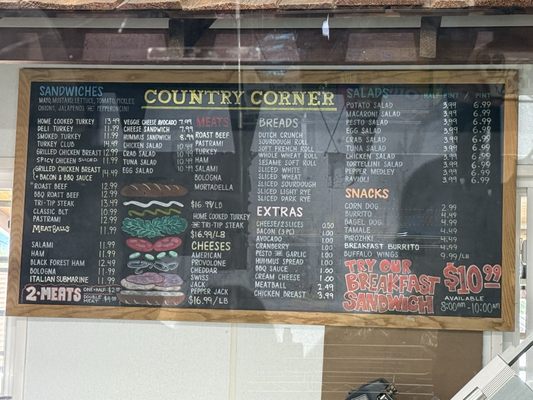 COUNTRY CORNER
SANDWICHES
MAYO, MUSTARD, LETTUCE, TOMATO, PICKLES,
ONIONS, JALAPENOS AND PEPPERONCINI
HOME COOKED TURKEY 13.49
DELI TURKEY 11.99
SMOKED TURKEY 11.99
TURKEY CLUB 14.49
GRILLED CHICKEN BREAST 12.99
SPICY CHICKEN SLICED 11.99
GRILLED CHICKEN BREAST
+ BACON & BBQ SAUCE 14.49
ROAST BEEF 12.99
BBQ ROAST BEEF 12.99
TRI-TIP STEAK 13.49
CLASSIC BLT 10.99
PASTRAMI 12.99
MEATBALLS 11.99
SALAMI 11.99
HAM 11.99
BLACK FOREST HAM 12.49
BOLOGNA 11.99
ITALIAN SUBMARINE 11.99
2-MEATS
VEGGIE CHEESE AVOCADO 9.99
CHEESE SANDWICH 7.99
HUMMUS SANDWICH 8.99
CHICKEN SALAD 10.99
CRAB SALAD 10.99
TUNA SALAD 10.99
EGG SALAD
MEATS
ROAST BEEF
PASTRAMI
TURKEY
HAM
SALAMI
BOLOGNA
MORTADELLA
$16.99/LB
HOME COOKED TURKEY
TRI-TIP STEAK
$16.99/LB
CHEESES
AMERICAN
PROVOLONE
CHEDDAR
SWISS
JACK
PEPPER JACK
$16.99/LB
BREADS
DUTCH CRUNCH
SOURDOUGH ROLL
SOFT FRENCH ROLL
WHOLE WHEAT ROLL
SESAME SOFT ROLL
SLICED WHITE
SLICED WHEAT
SLICED SOURDOUGH
SLICED LIGHT RYE
SLICED DARK RYE
EXTRAS
CHEESE/2 SLICES 0.50
BACON (3 PC) 1.99
AVOCADO 1.00
CRANBERRY 1.00
PESTO GARLIC 1.00
HUMMUS SPREAD 1.00
BBQ SAUCE 1.00
CREAM CHEESE 1.00
MEATBALL 2.49
CHICKEN BREAST 3.99
SALADS HALF PINT / PINT
POTATO SALAD 3.99 6.99
MACARONI SALAD 3.99 6.99
PESTO SALAD 3.99 6.99
EGG SALAD 3.99 6.99
CRAB SALAD 3.99 6.99
TUNA SALAD 3.99 6.99
CHICKEN SALAD 3.99 6.99
TORTELLINI SALAD 3.99 6.99
PEPPER MEDLEY 3.99 6.99
RAVIOLI 3.99 6.99
SNACKS
CORN DOG 2.99
BURRITO 2.99
BAGEL DOG 4.99
TAMALE 4.99
PIROZHKI 4.99
BREAKFAST BURRITO 4.99
BUFFALO WINGS 9.99
TRY OUR
BREAKFAST
SANDWICH
$10.99
AVAILABLE
8:00AM - 10:00AM